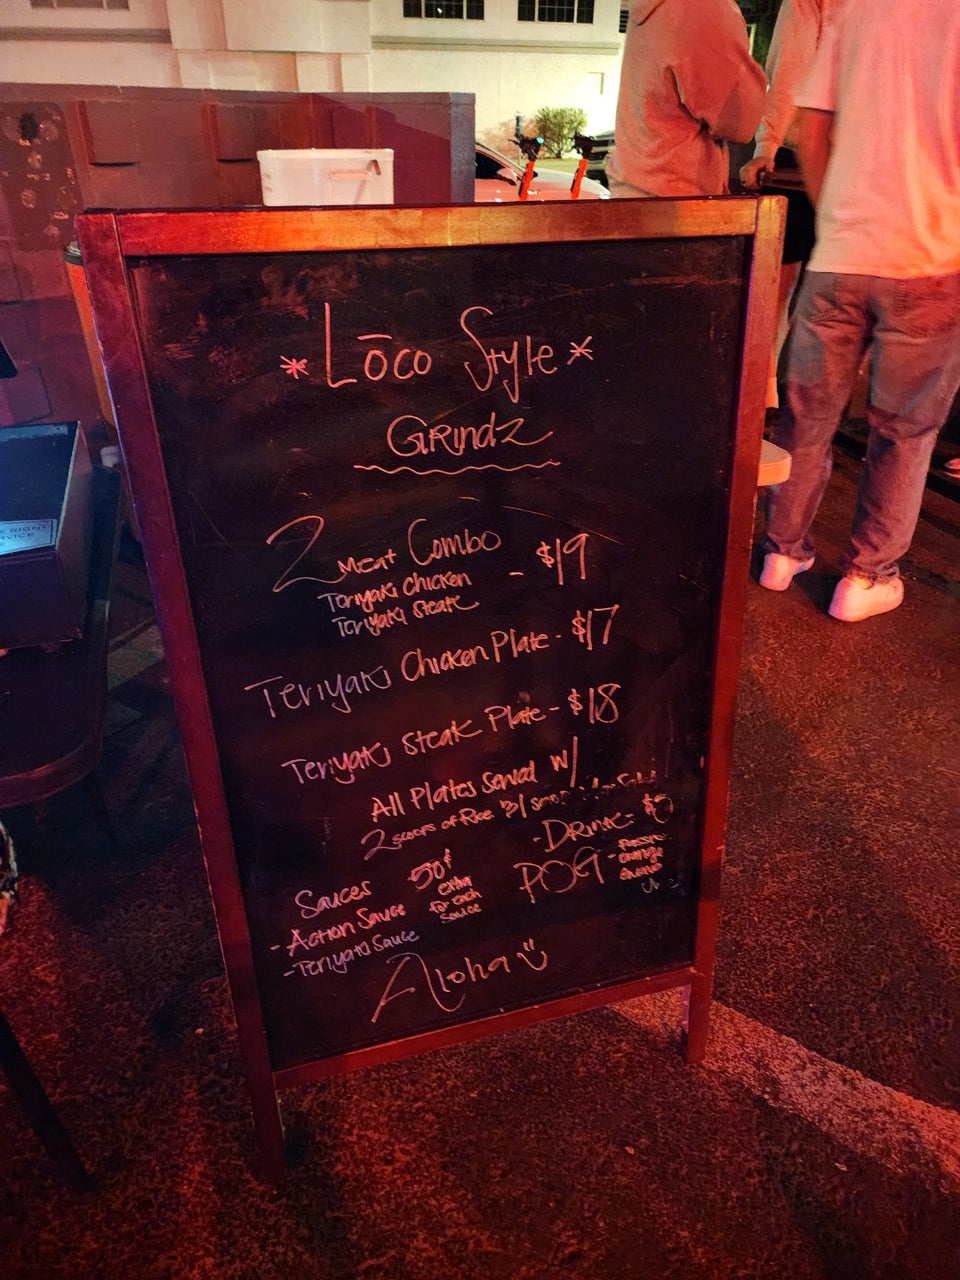 * Lōco Style *
Grindz
2 Meat Combo - $19
Teriyaki Chicken
Teriyaki Steak
Teriyaki Chicken Plate - $17
Teriyaki Steak Plate - $18
All Plates Served w/
2 scoops of Rice
- Drink - $5
POG - Passion
orange
guava
Sauces 50¢
extra
for each
sauce
- Action Sauce
- Teriyaki Sauce
Aloha